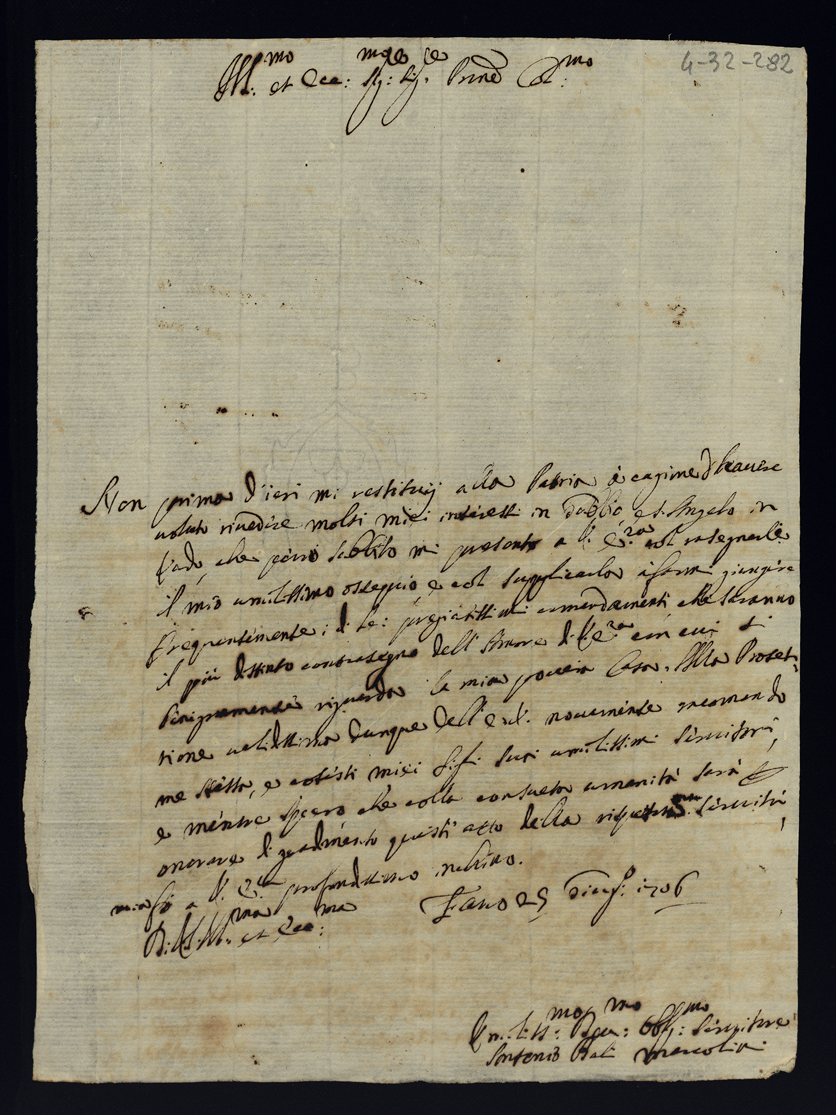 4-32-282
Ill:mo et Ecc: Sig: Sig: Prne Col:mo
Non prima d'ieri mi restituij alla Patria à cagione d'hauere
uoluto riuedere molti miei interessi in e S. Angelo in
Vado, che perciò subbito mi presento a V. E:za col rasegnarle
il mio umilissimo ossequio, e col supplicarla à farmi giungere
frequentemente i di lei pregiatissimi comandamenti che saranno
il più distinto contrasegno dell' Amore di V. E:za con cui si
benignamente riguarda la mia pouera Casa. Alla Protet-
tione ualidissima dunque dell' E. V. nouamente racomando
me stesso, e cotesti miei figli suoi umilissimi seruitori,
e mentre spero che colla consueta umanità sarà
onorare di gradimento questi atto della seruitù,
mia fò a V. E:za profondissimo inchino.
D. V. Ill:ma et Ecc:ma Fano 25 1706
Umiliss:mo Deu:mo Obblig:mo Seruitore
Antonio Marcolini